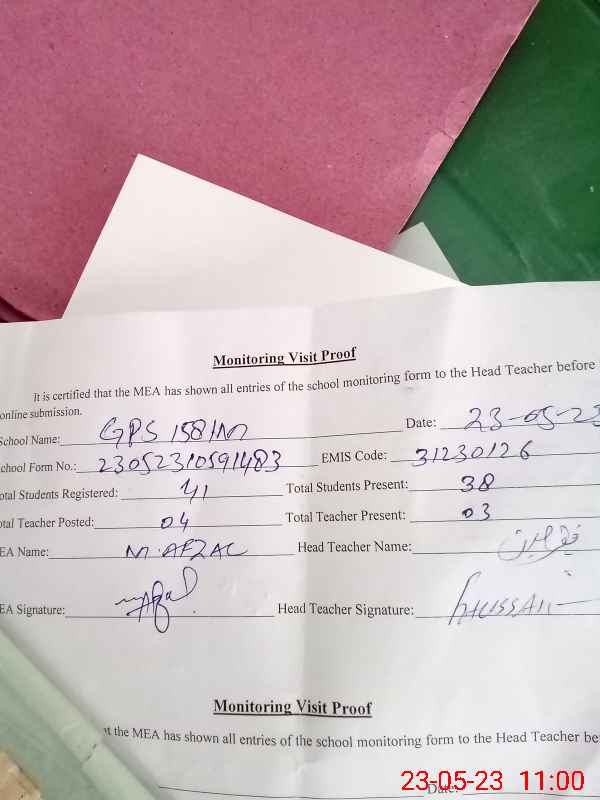 Monitoring Visit Proof
It is certified that the MEA has shown all entries of the school monitoring form to the Head Teacher before
online submission.
School Name: GPS 158/M Date: 23-05-23
School Form No.: 23052310591483 EMIS Code: 31230126
otal Students Registered: 41 Total Students Present: 38
otal Teacher Posted: 04 Total Teacher Present: 03
EA Name: M. AFZAL Head Teacher Name:
EA Signature: Head Teacher Signature: HUSSAIN
Monitoring Visit Proof
at the MEA has shown all entries of the school monitoring form to the Head Teacher be
Date:
23-05-23 11:00